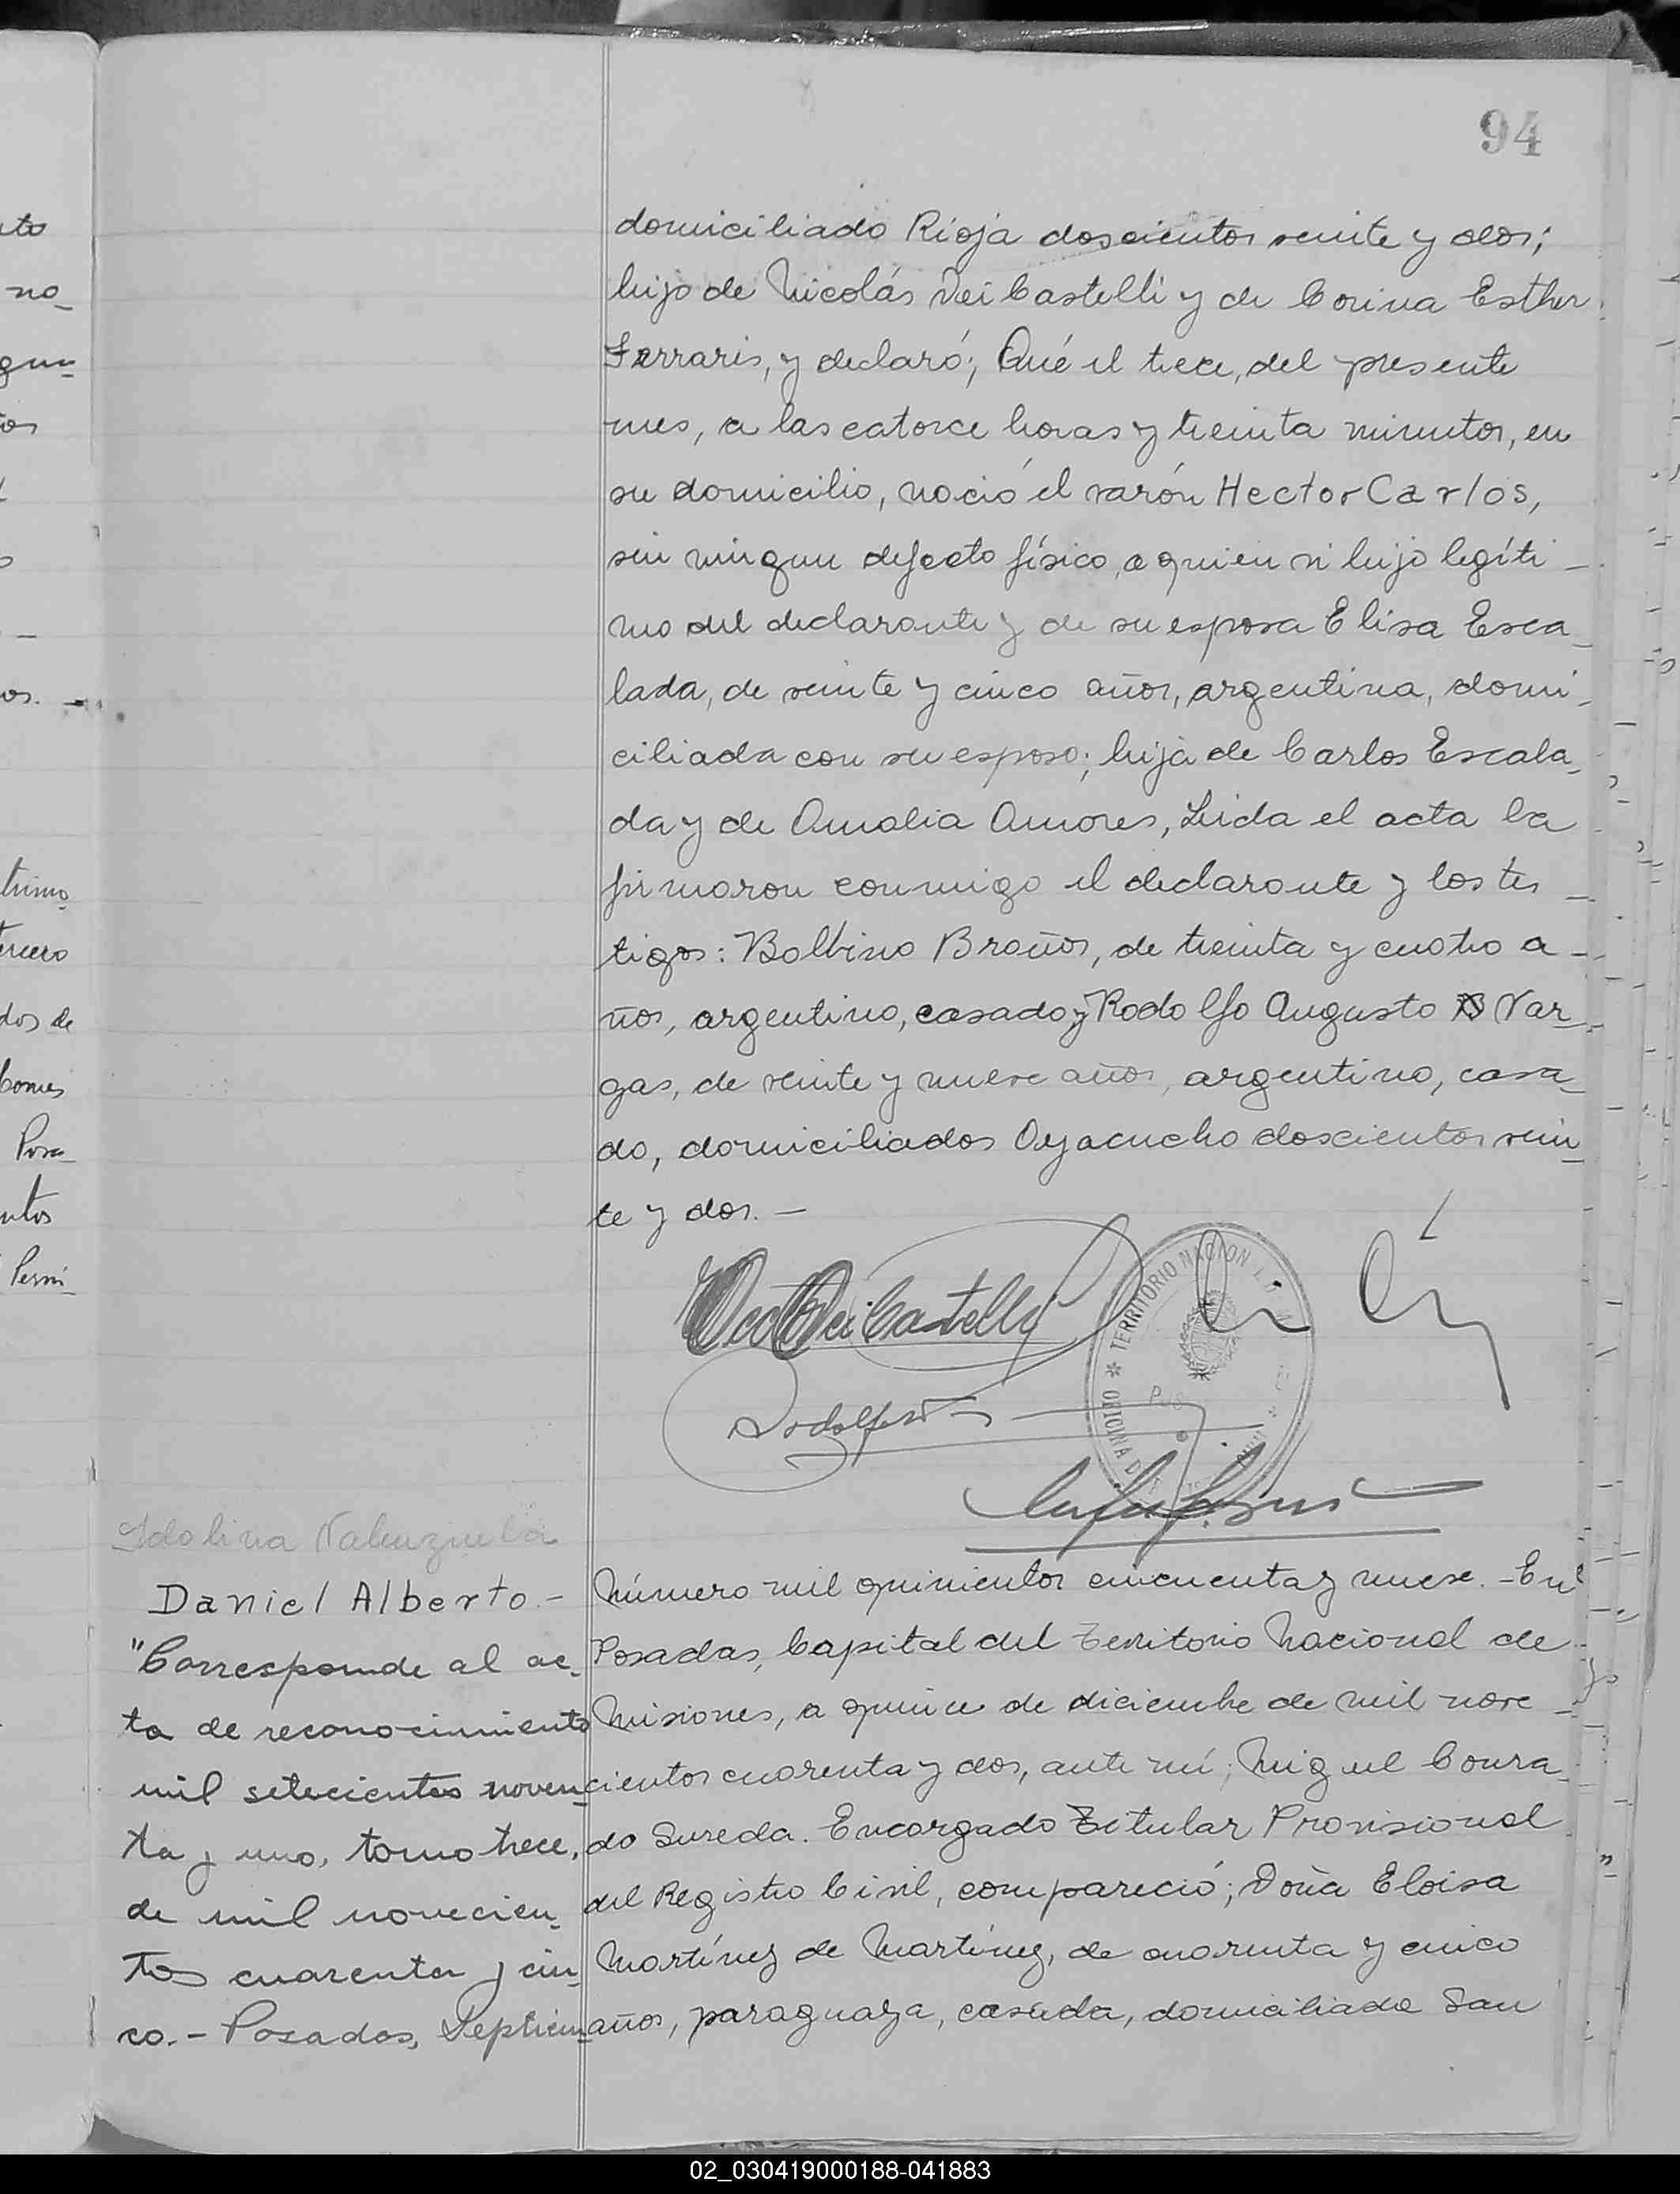 94
domiciliado Rioja doscientos veinte y dos;
hijo de Nicolás Dei Castelli y de Corina Esther
Ferraris, y declaró; Qué el trece, del presente
mes, a las catorce horas y treinta minutos, en
su domicilio, nació el varón Hector Carlos,
sin ningun defecto físico, a quien vi hijo legíti-
mo del declarante y de su esposa Elisa Esca-
lada, de veinte y cinco años, argentina, domi-
ciliada con su esposo; hija de Carlos Escala-
da y de Amalia Amores, Leida el acta la
firmaron conmigo el declarante y los tes-
tigos: Balbino Braños, de treinta y cuatro a-
ños, argentino, casado y Rodolfo Augusto Var-
gas, de veinte y nueve años, argentino, casa-
do, domiciliados Ayacucho doscientos vein-
te y dos. -
Dei Castelli
TERRITORIO NACIONAL
OFICINA
Rodolfo
Idolina Valenzuela
Daniel Alberto.-
"Corresponde al ac-
ta de reconocimiento
mil setecientos noven-
ta y uno, tomo trece,
de mil novecien-
tos cuarenta y cin-
co.- Posadas, Septiem-
Número mil quinientos cincuenta y nueve. - En
Posadas, Capital del Territorio Nacional de
Misiones, a quince de diciembre de mil nove-
cientos cuarenta y dos, ante mí; Miguel Conra-
do Sureda. Encargado Titular Provisional
del Registro Civil, compareció; Doña Eloisa
Martínez de Martínez, de cuarenta y cinco
años, paraguaya, casada, domiciliada San
nto
no-
gun-
os
os. -
trimo-
tercero
dos de
Posa-
ntos
02_030419000188-041883